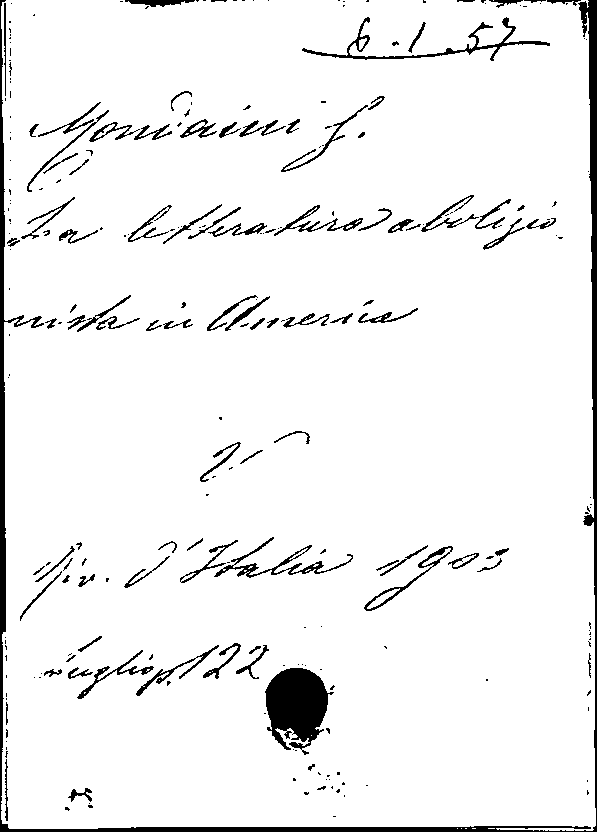 6.1.57
Mondaini G.
La letteratura abolizio
nista in America
V
Riv. d'Italia 1903
luglio p. 122